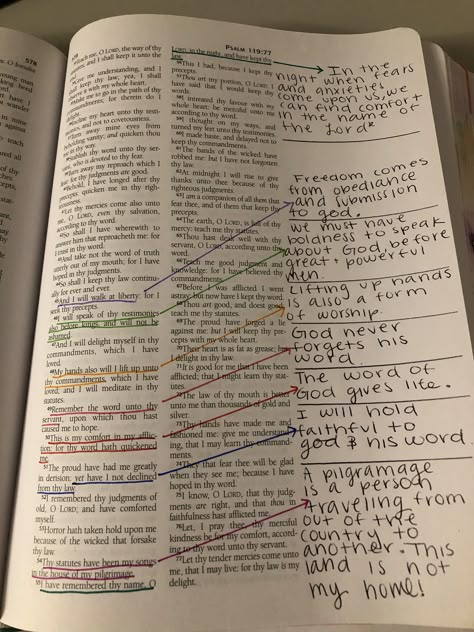 578
PSALM 119:77
Teach me, O LORD, the way of thy
and I shall keep it unto the
Give me understanding, and I
shall keep thy law; yea, I shall
observe it with my whole heart.
Make me to go in the path of thy
commandments; for therein do I
Incline my heart unto thy testi-
monies, and not to covetousness.
Turn away mine eyes from
beholding vanity; and quicken thou
me in thy way.
Stablish thy word unto thy ser-
vant, who is devoted to thy fear.
Turn away my reproach which I
fear: for thy judgments are good.
Behold, I have longed after thy
precepts: quicken me in thy righ-
teousness.
Let thy mercies come also unto
me, O LORD, even thy salvation,
according to thy word.
So shall I have wherewith to
answer him that reproacheth me: for
I trust in thy word.
And take not the word of truth
utterly out of my mouth; for I have
hoped in thy judgments.
So shall I keep thy law continu-
ally for ever and ever.
45And I will walk at liberty: for I
seek thy precepts.
46I will speak of thy testimonies
also before kings, and will not be
ashamed.
47And I will delight myself in thy
commandments, which I have
loved.
48My hands also will I lift up unto
thy commandments, which I have
loved; and I will meditate in thy
statutes.
49Remember the word unto thy
servant, upon which thou hast
caused me to hope.
50This is my comfort in my afflic-
tion: for thy word hath quickened
me.
51The proud have had me greatly
in derision: yet have I not declined
from thy law.
52I remembered thy judgments of
old, O LORD; and have comforted
myself.
53Horror hath taken hold upon me
because of the wicked that forsake
thy law.
54Thy statutes have been my songs
in the house of my pilgrimage.
55I have remembered thy name, O
LORD, in the night, and have kept thy
law.
56This I had, because I kept thy
precepts.
57Thou art my portion, O LORD: I
have said that I would keep thy
words.
58I intreated thy favour with my
whole heart: be merciful unto me
according to thy word.
59I thought on my ways, and
turned my feet unto thy testimonies.
60I made haste, and delayed not to
keep thy commandments.
61The bands of the wicked have
robbed me: but I have not forgotten
thy law.
62At midnight I will rise to give
thanks unto thee because of thy
righteous judgments.
63I am a companion of all them that
fear thee, and of them that keep thy
precepts.
64The earth, O LORD, is full of thy
mercy: teach me thy statutes.
65Thou hast dealt well with thy
servant, O LORD, according unto thy
word.
66Teach me good judgment and
knowledge: for I have believed thy
commandments.
67Before I was afflicted I went
astray: but now have I kept thy word.
68Thou art good, and doest good;
teach me thy statutes.
69The proud have forged a lie
against me: but I will keep thy pre-
cepts with my whole heart.
70Their heart is as fat as grease; but
I delight in thy law.
71It is good for me that I have been
afflicted; that I might learn thy stat-
utes.
72The law of thy mouth is better
unto me than thousands of gold and
silver.
73Thy hands have made me and
fashioned me: give me understand-
ing, that I may learn thy command-
ments.
74They that fear thee will be glad
when they see me; because I have
hoped in thy word.
75I know, O LORD, that thy judg-
ments are right, and that thou in
faithfulness hast afflicted me.
76Let, I pray thee, thy merciful
kindness be for my comfort, accord-
ing to thy word unto thy servant.
77Let thy tender mercies come unto
me, that I may live: for thy law is my
delight.
In the
night when fears
and anxieties
come upon us, we
can find comfort
in the name of
the Lord*
Freedom comes
from obediance
and submission
to god.
we must have
boldness to speak
about God before
great + powerful
men.
Lifting up hands
is also a form
of worship.
God never
forgets his
word.
The word of
God gives life.
I will hold
faithful to
god & his word
A pilgramage
is a person
traveling from
out of the
country to
another. This
land is not
my home!